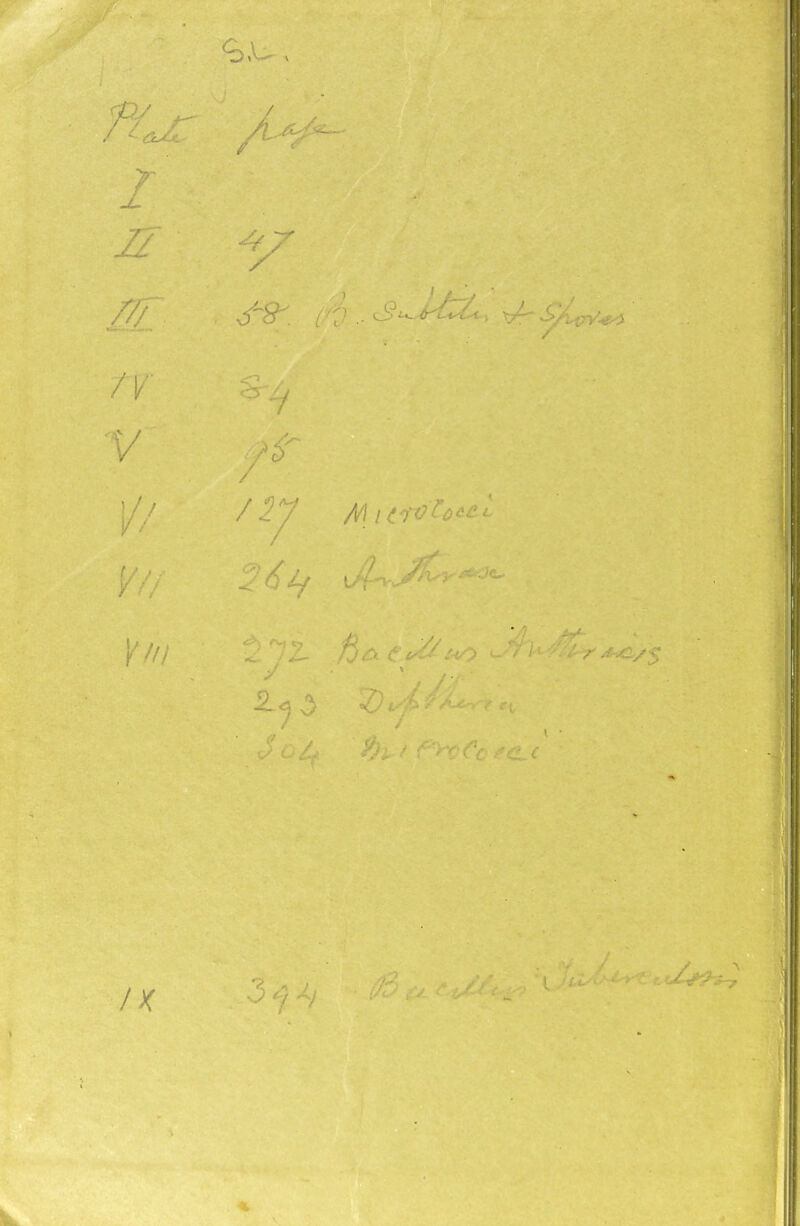 S.L.
Plate page
I
II 47
III 58. B. Subtilis & Spores
IV 84
V 95
VI 127 Micrococci
VII 264 Anthrax
VIII 272 Bacillus Anthracis
293 Diphtheria
304 Micrococci
IX 394 Bacillus Tuberculosis